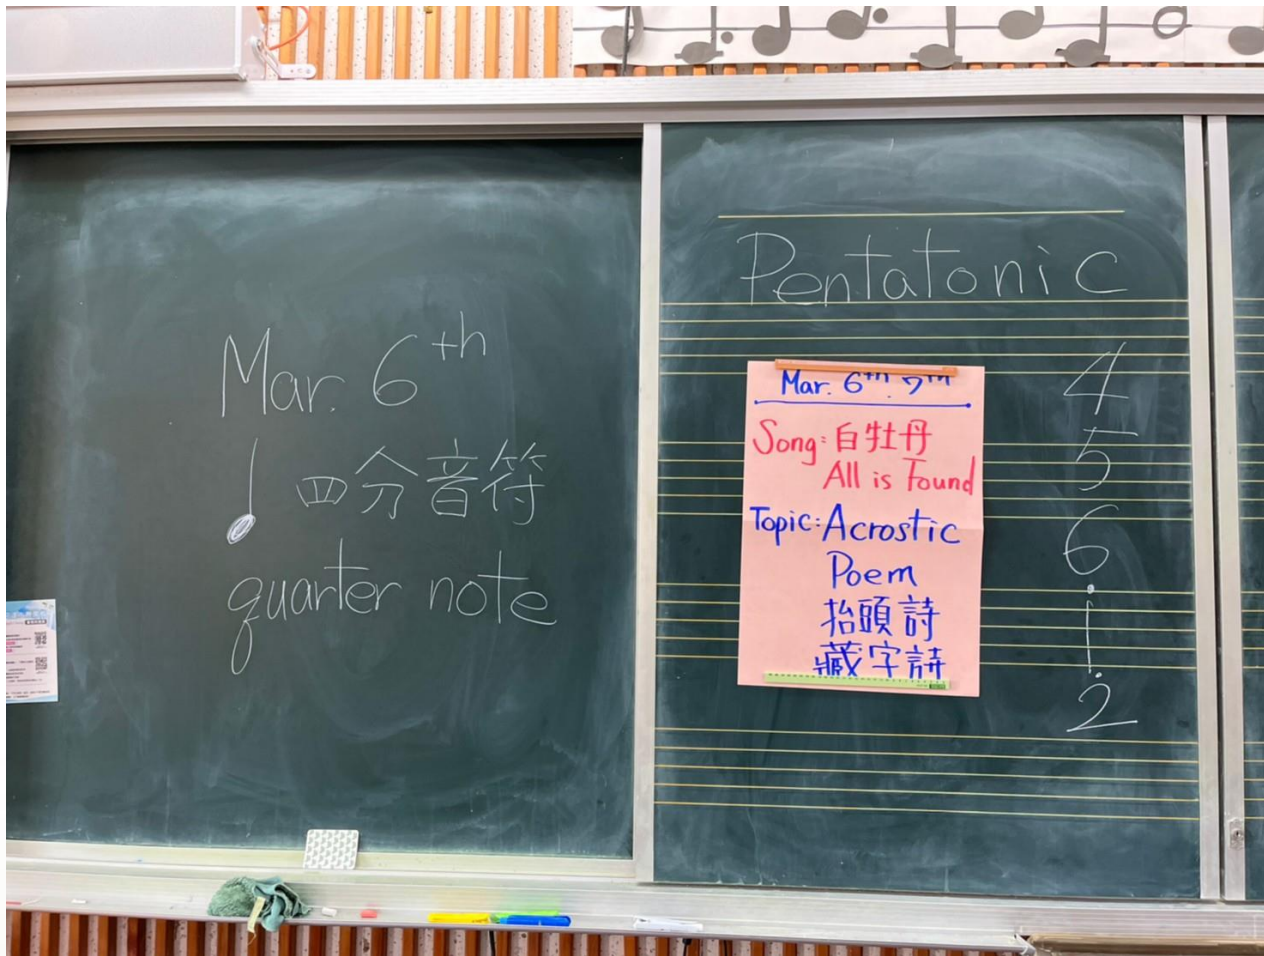 Mar. 6th
四分音符
quarter note
Pentatonic
Mar. 6th. 7th
Song: 白牡丹
All is Found
Topic: Acrostic
Poem
抬頭詩
藏字詩
4
5
6
1̇
2̇